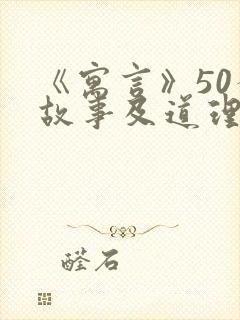 《寓言》50
故事及道理
醛石